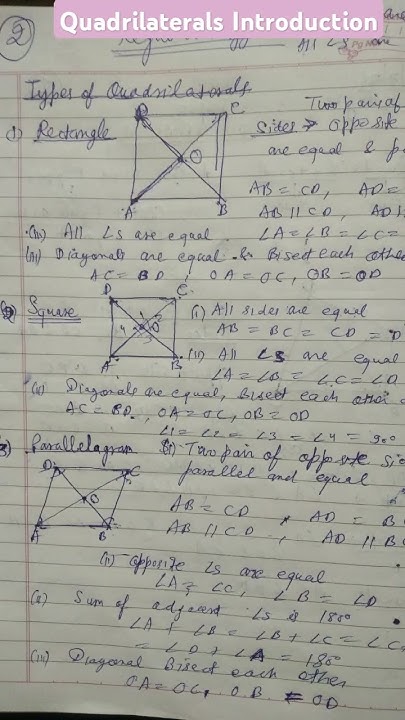 Quadrilaterals Introduction
②
All ∠s
Types of Quadrilaterals
(1) Rectangle
D C
O
A B
Two pair of
Sides → opposite
are equal &
AB = CD, AD =
AB || CD, AD
(ii) All ∠s are equal ∠A = ∠B = ∠C =
(iii) Diagonals are equal & Bisect each other
AC = BD, OA = OC, OB = OD
(2) Square
D C
1 2 3 4 O
A B
(i) All sides are equal
AB = BC = CD =
(ii) All ∠s are equal
∠A = ∠B = ∠C = ∠D
Diagonals are equal, Bisect each other
AC = BD, OA = OC, OB = OD
∠1 = ∠2 = ∠3 = ∠4 = 90°
Parallelogram
D C
O
A B
Two pair of opposite
parallel and equal
AB = CD, AD = B
AB || CD, AD || BC
(ii) opposite ∠s are equal
∠A = ∠C, ∠B = ∠D
Sum of adjacent ∠s is 180°
∠A + ∠B = ∠B + ∠C = ∠C
= ∠D + ∠A = 180°
(iii) Diagonal Bisect each other
OA = OC, OB = OD